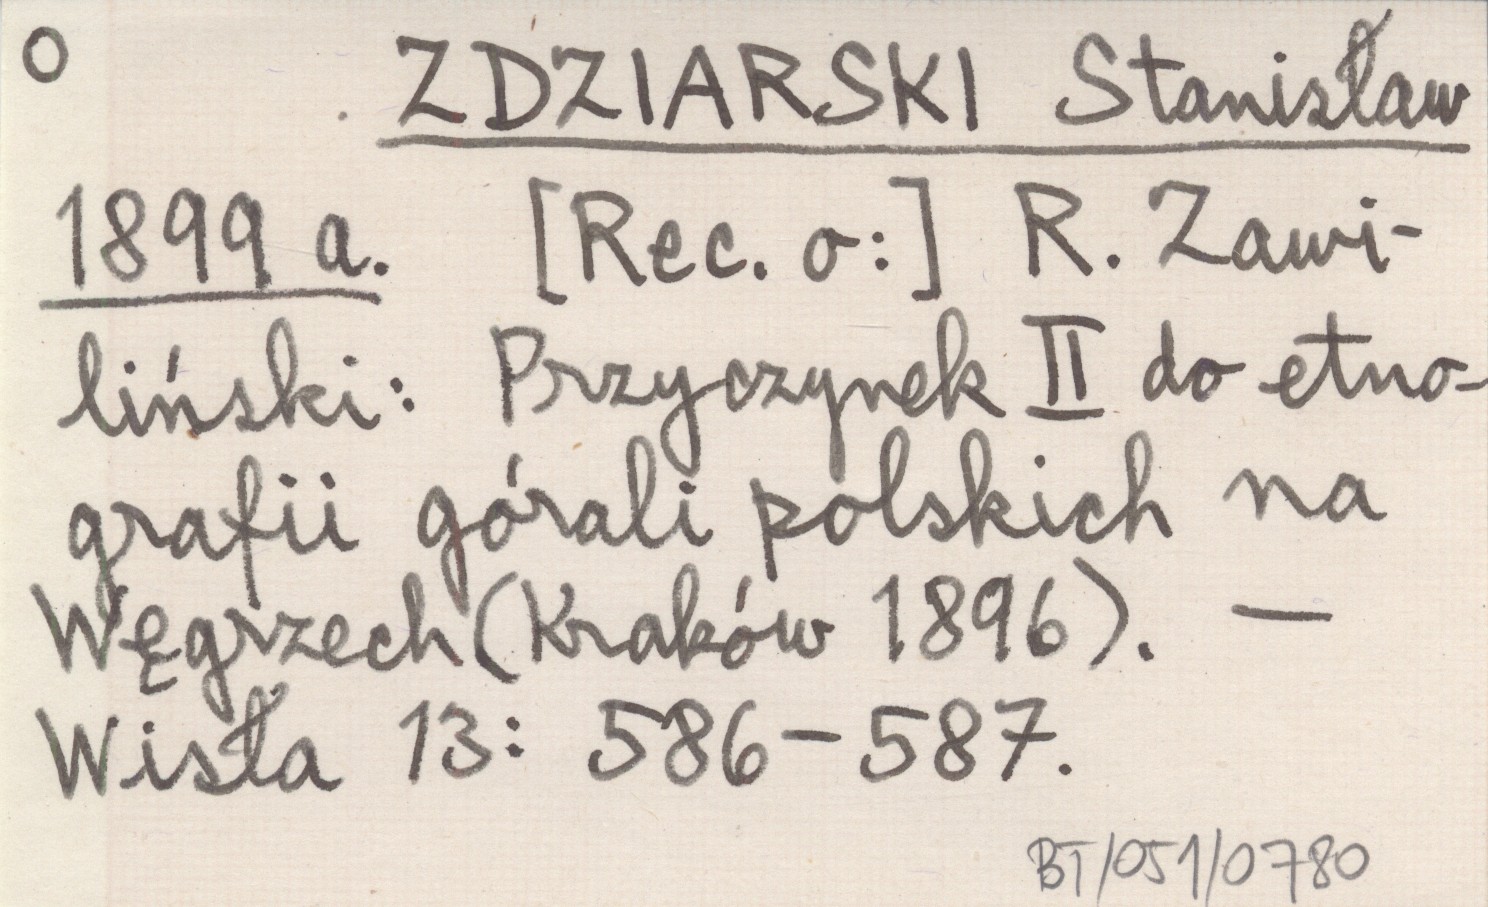 O ZDZIARSKI Stanisław
1899 a. [Rec. o:] R. Zawi-
liński: Przyczynek II do etno-
grafii górali polskich na
Węgrzech (Kraków 1896). —
Wisła 13: 586-587.
BT/051/0780